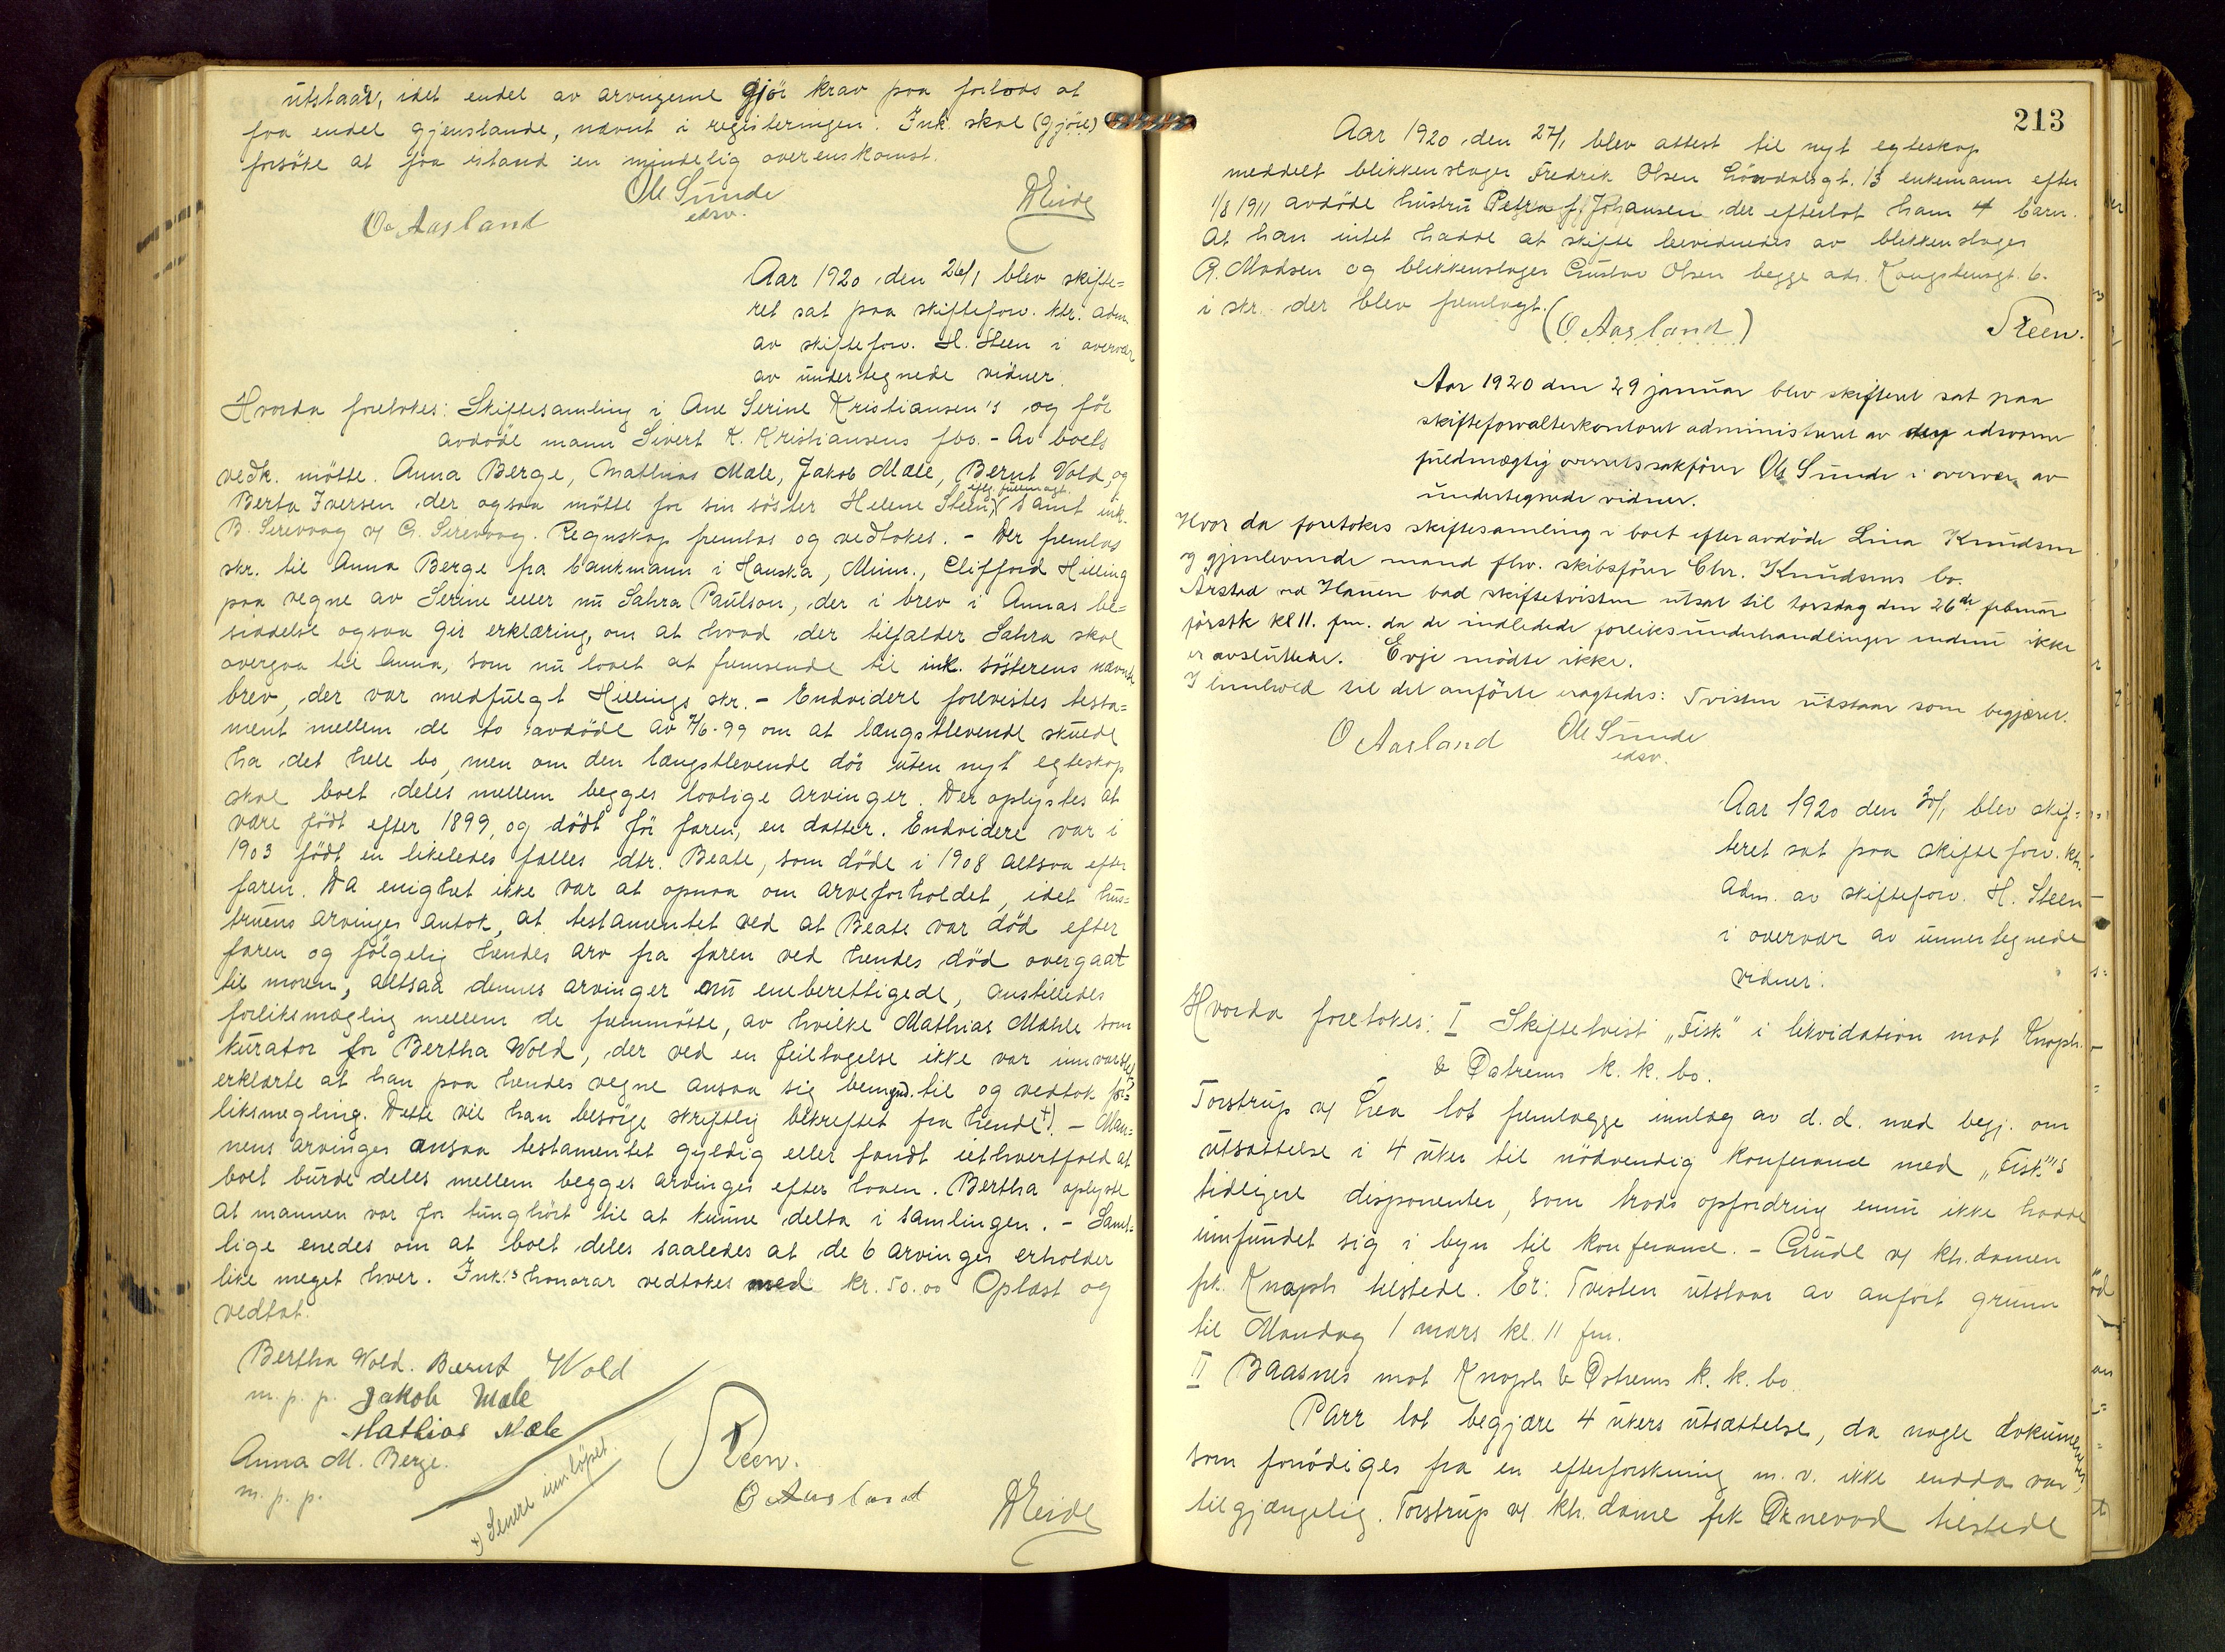 utstaar, idet endel av arvingerne gjör krav paa forlods at
faa endel gjenstande, nævnt i registeringen. Ink. skal (gjöre)
forsöke at faa istand en mindelig overenskomst.
Ole Sunde
edsv.
O. Aasland
Aar 1920 den 26/1 blev skifte=
ret sat paa skifteforv. ktr. adm.
av skifteforv. H. Steen i overvær
av undertegnede vidner.
Hvorda foretokes: Skiftesamling i Ane Serine Kristiansen's og för
avdöde mann Sivert K. Kristiansens fbo. - Av boets
vedk. mötte. Anna Berge, Mathias Mæle, Jakob Mæle, Bernt Vold, og
Berta Iversen der ogsaa mötte for sin söster Helene Steen, samt ink.
eflg. fullmagt.
B. Serevaag v/ G. Serevaag. Regnskap fremlaa og vedtokes. - Der fremlaa
skr. til Anna Berge fra bankmann i Hanska, Minn., Clifford Hilling
paa vegne av Serine eller nu Sahra Paulson, der i brev i Annas be=
siddelse ogsaa gir erklæring, om at hvad der tilfalder Sahra skal
overgaa til Anna, som nu lovet at fremsende til ink. sösterens nævnte
brev, der var medfulgt Hillings skr. - Endvidere forevistes testa=
ment mellem de to avdöde av 7/6-99 om at længstlevende skulde
ha det hele bo, men om den længstlevende dör uten nyt egteskap
skal boet deles mellem begges lovlige arvinger. Der oplystes at
være födt efter 1899, og dödt för faren, en datter. Endvidere var i
1903 födt en likeledes fælles dtr. Beate, som döde i 1908 altsaa efter
faren. Da enighet ikke var at opnaa om arveforholdet, idet hus=
truens arvinger antok, at testamentet ved at Beate var död efter
faren og fölgelig hendes arv fra faren ved hendes död overgaat
til moren, altsaa dennes arvinger nu eneberettigede, anstilledes
forliksmægling mellem de fremmötte, av hvilke Mathias Mæhle som
kurator for Bertha Wold, der ved en feiltagelse ikke var innvarslet,
erklærte at han paa hendes vegne ansaa sig bemynd. til og vedtok for=
liksmegling. Dette vil han besörge skriftlig bekreftet fra hende +). - Man=
nens arvinger ansaa testamentet gyldig eller fandt iethvertfald at
boet burde deles mellem begges arvinger efter loven. Bertha oplyste
at mannen var for tunghört til at kunne delta i samlingen. - Samt=
lige enedes om at boet deles saaledes at de 6 arvinger erholder
like meget hver. Ink.'s honorar vedtokes med kr. 50.00 Oplæst og
vedtat.
Bertha Wold. Bernt Wold
m. p. p. Jakob Mæle
Mathias Mæle
Anna M. Berge.
m. p. p.
+) Senere innlöpet.
Steen.
O Aasland
213
Aar 1920 den 27/1 blev attest til nyt egteskap
meddelt blikkenslager Fredrik Olsen Lövdalsgt. 13 enkemann efter
1/8 1911 avdöde hustru Petra f. Johansen der efterlot ham 4 barn.
At han intet hadde at skifte bevidnedes av blikkenslager
R. Madsen og blikkenslager Gustav Olsen begge adr. Kongstensgt. 6.
i skr. der blev fremlagt.
(O Aasland)
Steen.
Aar 1920 den 29 januar blev skifteret sat paa
skifteforvalterkontoret administreret av edsvoren
fuldmægtig overretssakförer Ole Sunde i overvær av
undertegnede vidner.
Hvor da foretokes skiftesamling i boet efter avdöde Lina Knudsen
og gjenlevende mand fhv. skibsförer Chr. Knudsens bo.
Årstad ved Hauen bad skiftetvisten utsat til torsdag den 26de februar
förstk kl 11. fm. da de indledede forliksunderhandlinger endnu ikke
er avsluttede. Evje mödte ikke.
I henhold til det anförte eragtedes: Tvisten utstaar som begjæret.
O Aasland Ole Sunde
edsv.
Aar 1920 den 30/1 blev skif=
teret sat paa skifteforv. ktr.
adm. av skifteforv. H. Steen
i overvær av unnertegnede
vidner:
Hvorda foretokes: I Skiftetvist "Fisk" i likvidation mot Knoph
& Östrems k. k. bo.
Torstrup v/ Lea lot fremlægge innlæg av d. d. med begj. om
utsættelse i 4 uker til nödvendig konferance med "Fisk"'s
tidligere disponenter, som trods opfordring ennu ikke hadde
innfundet sig i byn til konferance. - Grude v/ ktr.damen
frk. Knoph tilstede. Er: Tvisten utstaar av anfört grunn
til Mandag 1 mars kl. 11 fm.
II Baasnes mot Knoph & Östrems k. k. bo.
Parr lot begjære 4 ukers utsættelse, da nogle dokumenter,
som fornödiges fra en efterforskning m. v. ikke endda var
tilgjængelig. Torstrup v/ ktr. dame frk Öknevad tilstede